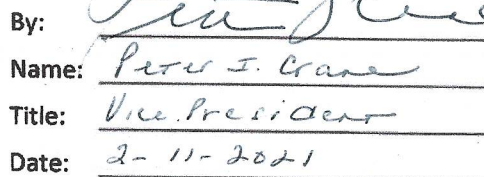 By:
Name: Peter I. Crane
Title: Vice President
Date: 2-11-2021